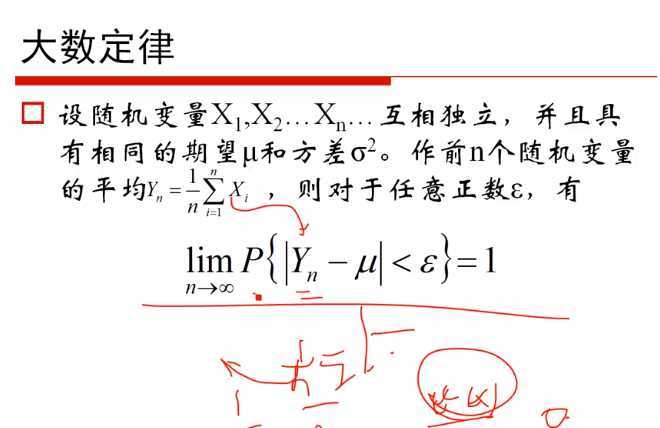 大数定律
设随机变量X₁,X₂…Xₙ…互相独立，并且具
有相同的期望μ和方差σ²。作前n个随机变量
的平均Yₙ = 1/n ∑ᵢ₌₁ⁿ Xᵢ ，则对于任意正数ε，有
lim n→∞ P{|Yₙ − μ| < ε} = 1